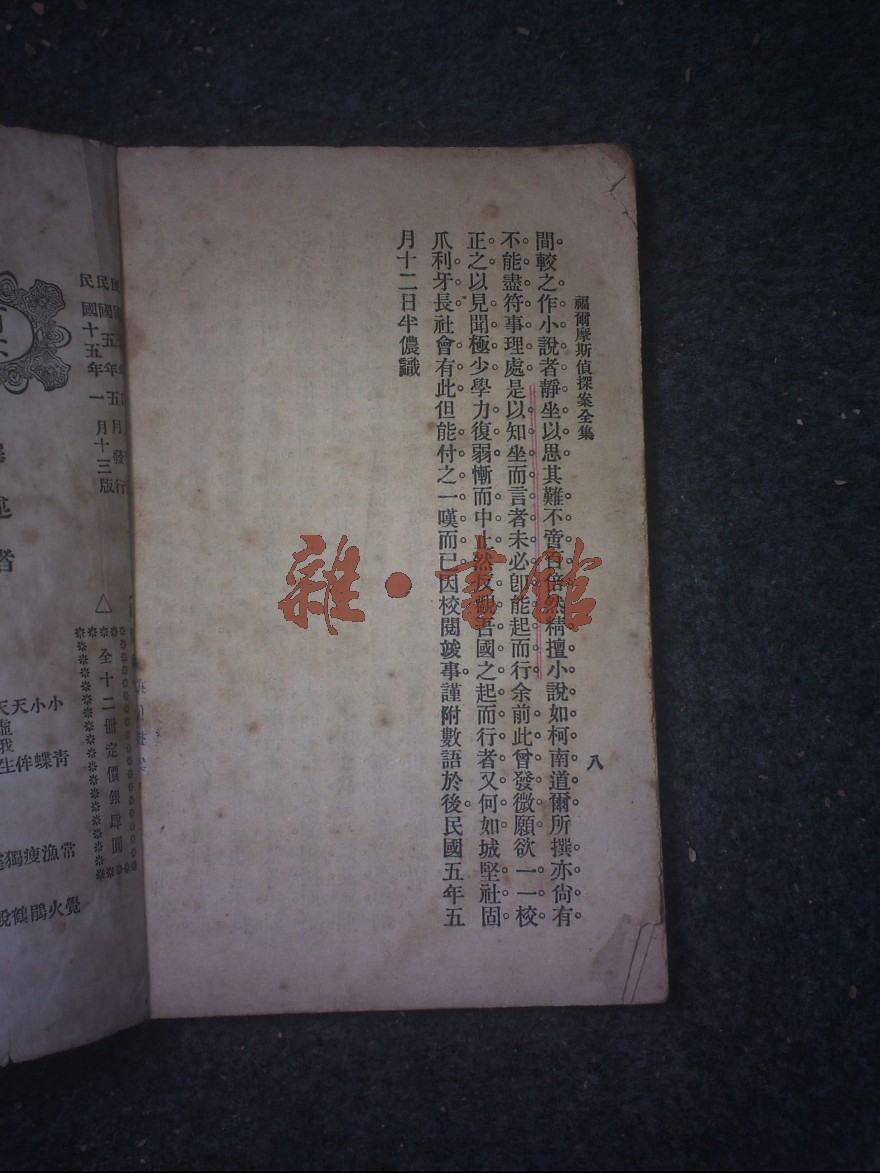 福爾摩斯偵探案全集
八
間較之作小說者靜坐以思其難不啻百倍然精擅小說如柯南道爾所撰亦尙有
不能盡符事理處是以知坐而言者未必卽能起而行余前此曾發微願欲一一校
正之以見聞極少學力復弱慚而中止然反觀吾國之起而行者又何如城堅社固
爪利牙長社會有此但能付之一嘆而已因校閱竣事謹附數語於後民國五年五
月十二日半儂識
雜·書館
民國十五年一月十三版
全十二册定價銀肆圓
述
者